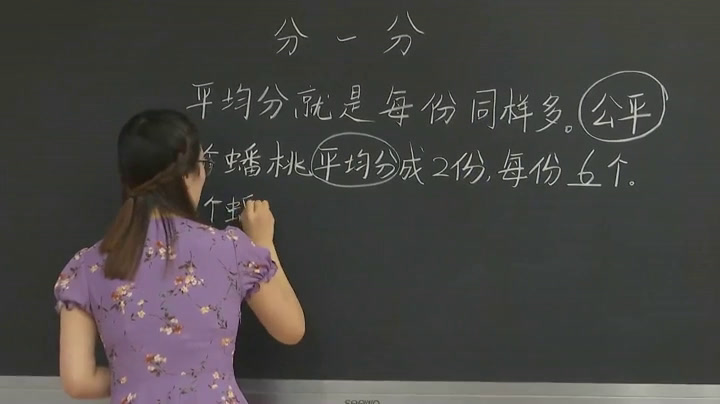 分一分
平均分就是每份同样多。公平
个蟠桃平均分成2份,每份6个。
个蟠